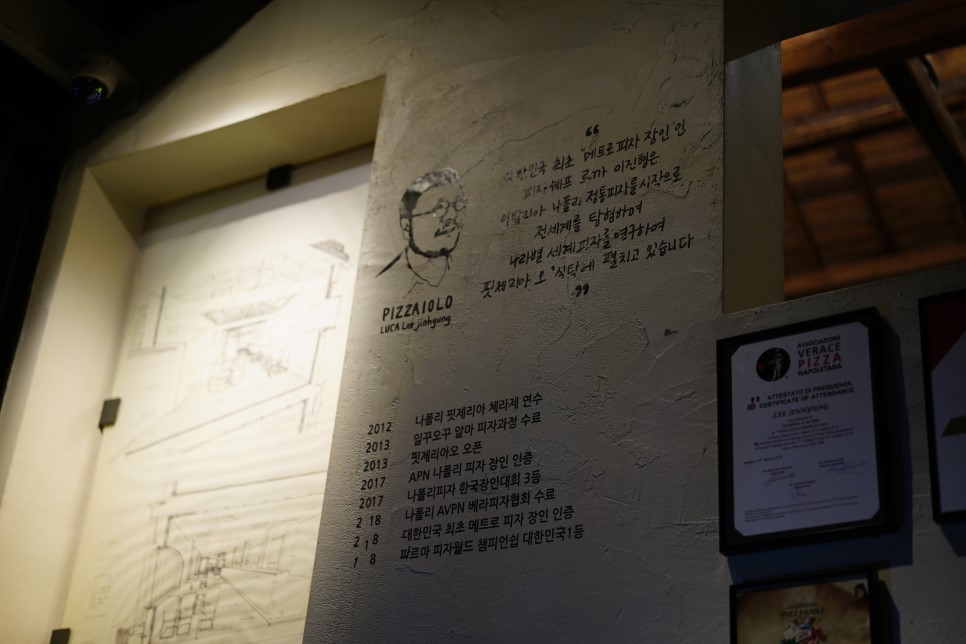 ❝
대한민국 최초 "메트로피자 장인"인
피자쉐프 루까 이진형은
이탈리아 나폴리 정통피자를 시작으로
전세계를 탐험하며
나라별 세계피자를 연구하여
핏제리아 오 식탁에 펼치고 있습니다
❞
PIZZAIOLO
LUCA Lee jinhyung
2012 나폴리 핏제리아 체라제 연수
2013 일꾸오꾸 알마 피자과정 수료
2013 핏제리아오 오픈
2017 APN 나폴리 피자 장인 인증
2017 나폴리피자 한국장인대회 3등
2 18 나폴리 AVPN 베라피자협회 수료
2 1 8 대한민국 최초 메트로 피자 장인 인증
1 8 파르마 피자월드 챔피언쉽 대한민국1등
ASSOCIAZIONE
VERACE
PIZZA
NAPOLETANA
ATTESTATO DI FREQUENZA
CERTIFICATE OF ATTENDANCE
LEE JINHYUNG
PIZZAIUOLI